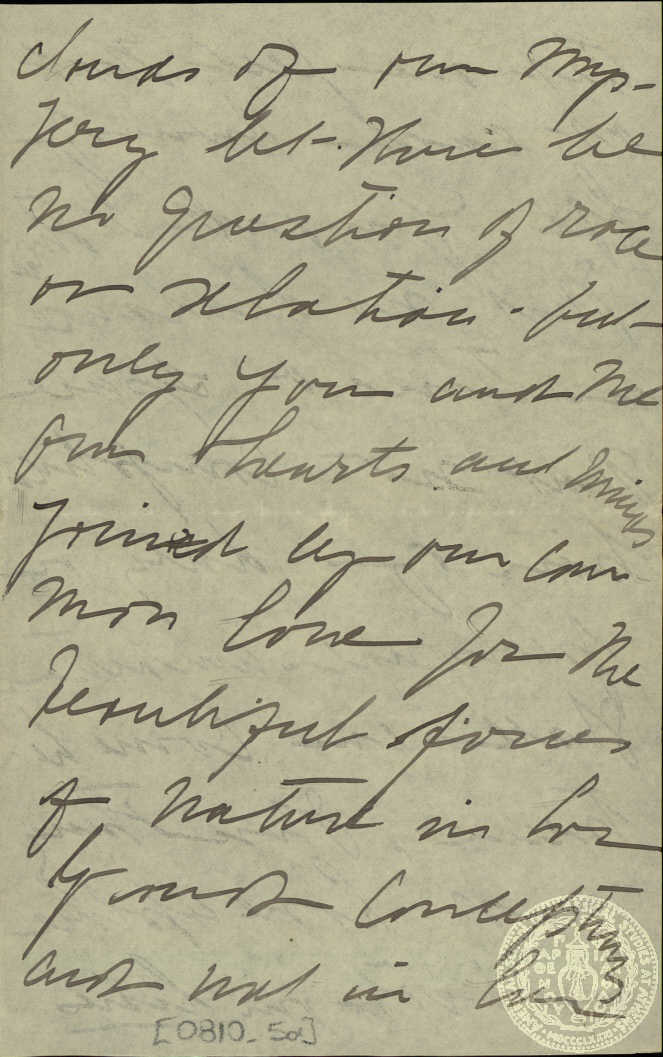 clouds of our mys-
tery let there be
no question of race
or relation - but
only you and me
our hearts and minds
joined by our com
mon love for the
beautiful forces
of nature in her
grand conceptions
and not in
[0810_5a]